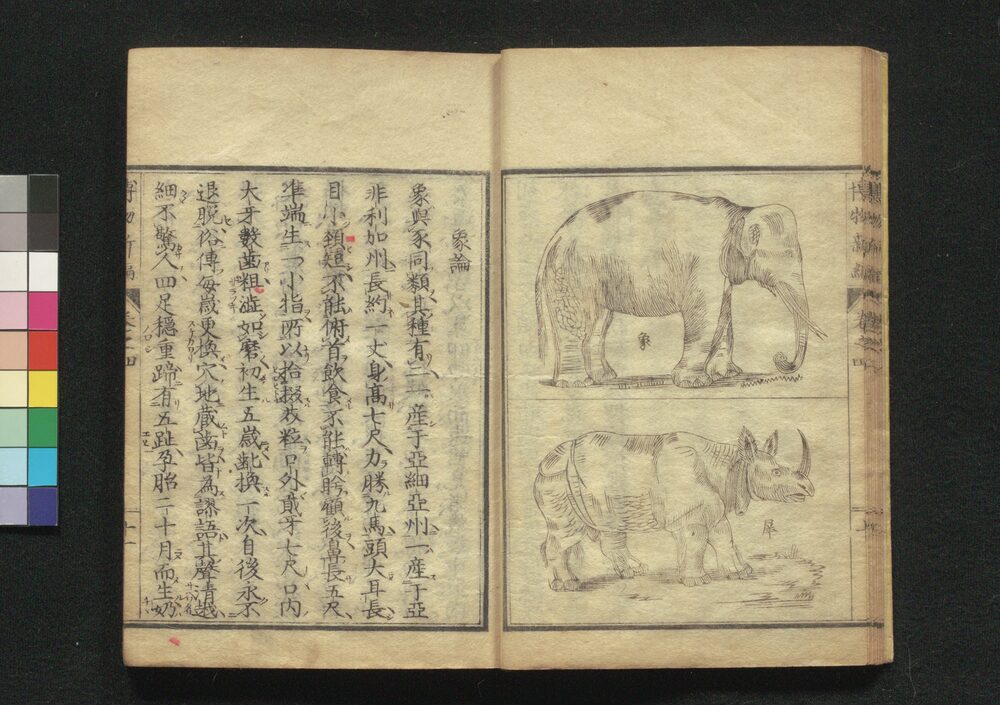 博物新編
象
犀
象論
象與豕同類其種有二一産于亞細亞州一産于亞
非利加州長約一丈身高七尺力勝九馬頭大耳長
目小頸短不能俯首飲食不能轉盻顧後鼻長五尺
準端生一小指所以拾掇衣粒口外貳牙七尺口内
大牙數齒粗澁如磨初生五歲齔換一次自後永不
退脱俗傳每歲更換穴地蔵齒皆為謬語其聲清越
細不驚人四足穩重蹄有五趾孕胎二十月而生奶
博物新編 卷之四 十一